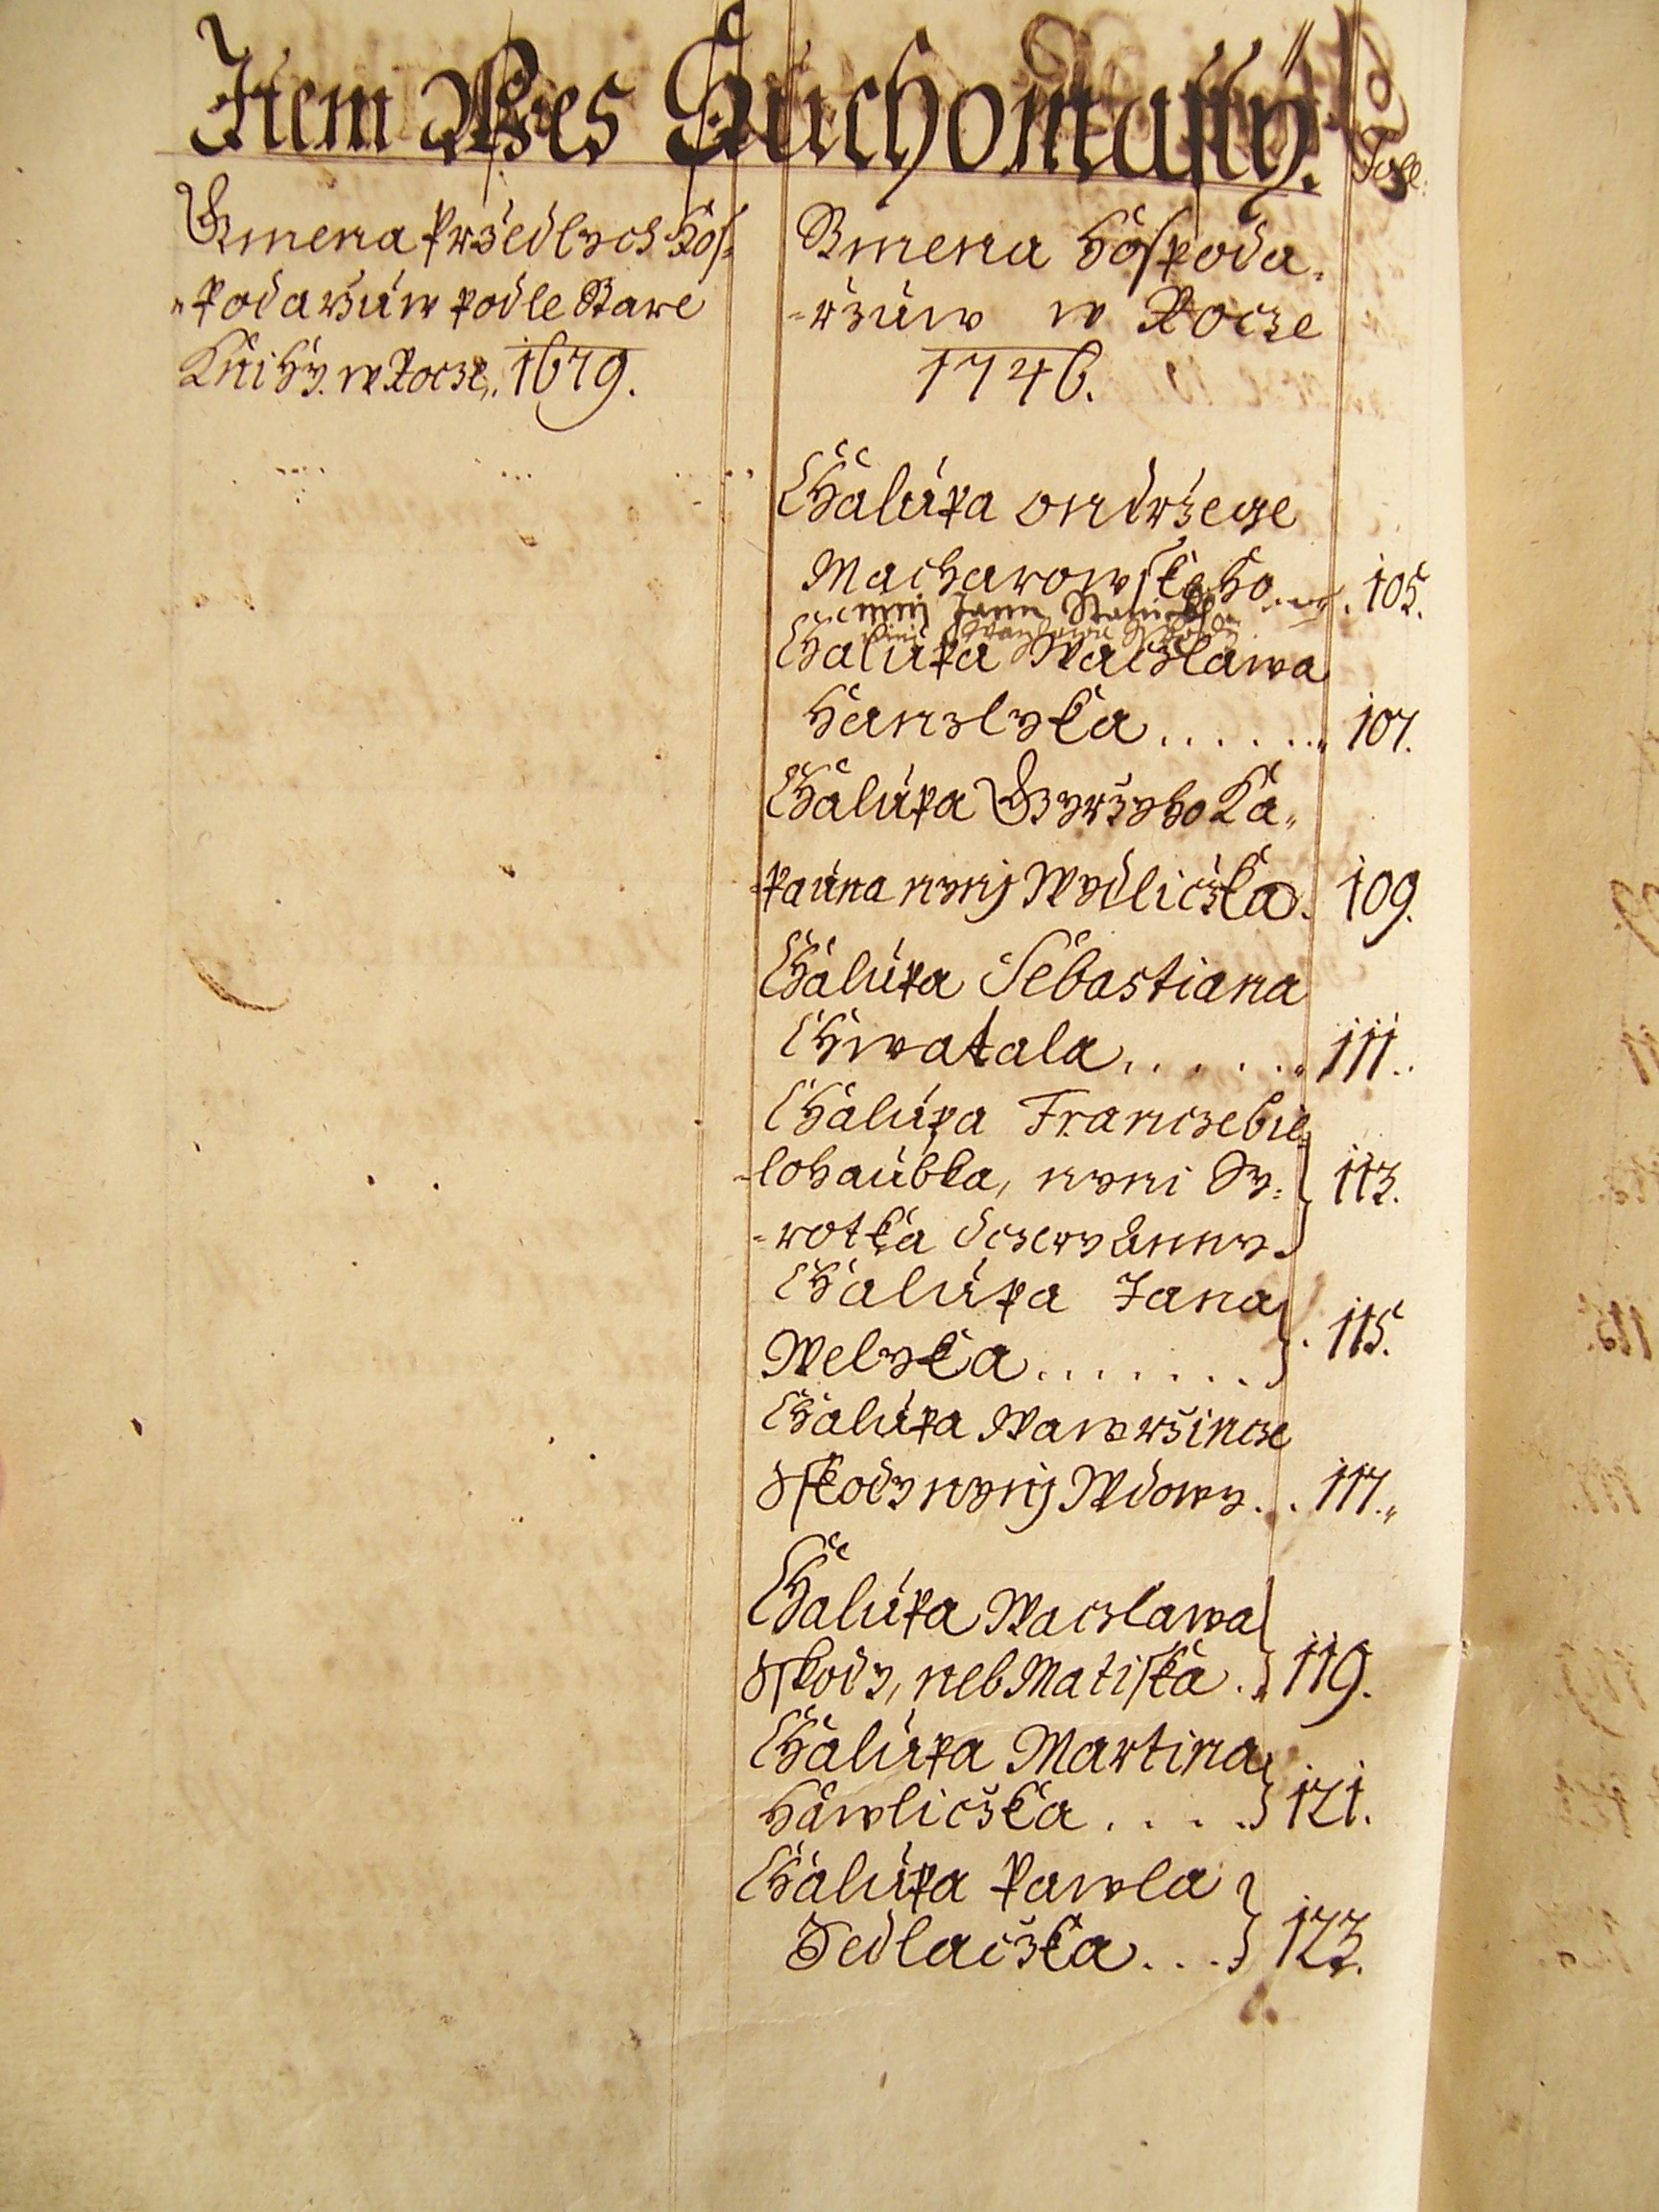 Item Wes Suchomasty.
Fol:
Gmena przedlych hos-
podarzuw podle Stare
Knihy. w Rocze, 1679.
Gmena hospoda-
rzuw w Rocze
1746.
Chalupa ondrzege
Macharowskeho 105.
nynj Jann
Chalupa Waczlawa
Hanzlyka 107.
Chalupa Gyrzyho Ka-
pauna nynj Wydliczka. 109.
Chalupa Sebastiana
Chwatala 111.
Chalupa Francze bie-
lohaubka, nyni Sy-
rotka dczery Anny. 113.
Chalupa Jana
Welyka 115.
Chalupa Wawrzincze
Sskody nynj Wdowy 117.
Chalupa Waczlawa
Sskody, neb Matiska 119.
Chalupa Martina
Hawliczka 121.
Chalupa Pawla
Sedlaczka 123.